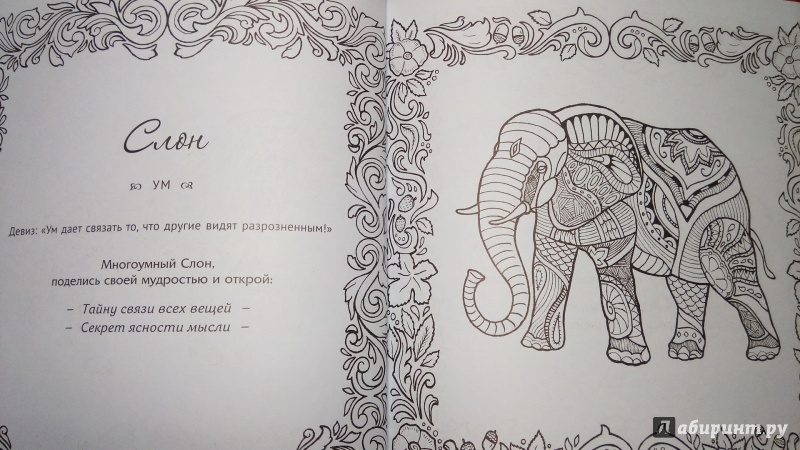 Слон
УМ
Девиз: «Ум дает связать то, что другие видят разрозненным!»
Многоумный Слон,
поделись своей мудростью и открой:
– Тайну связи всех вещей –
– Секрет ясности мысли –
Лабиринт.ру